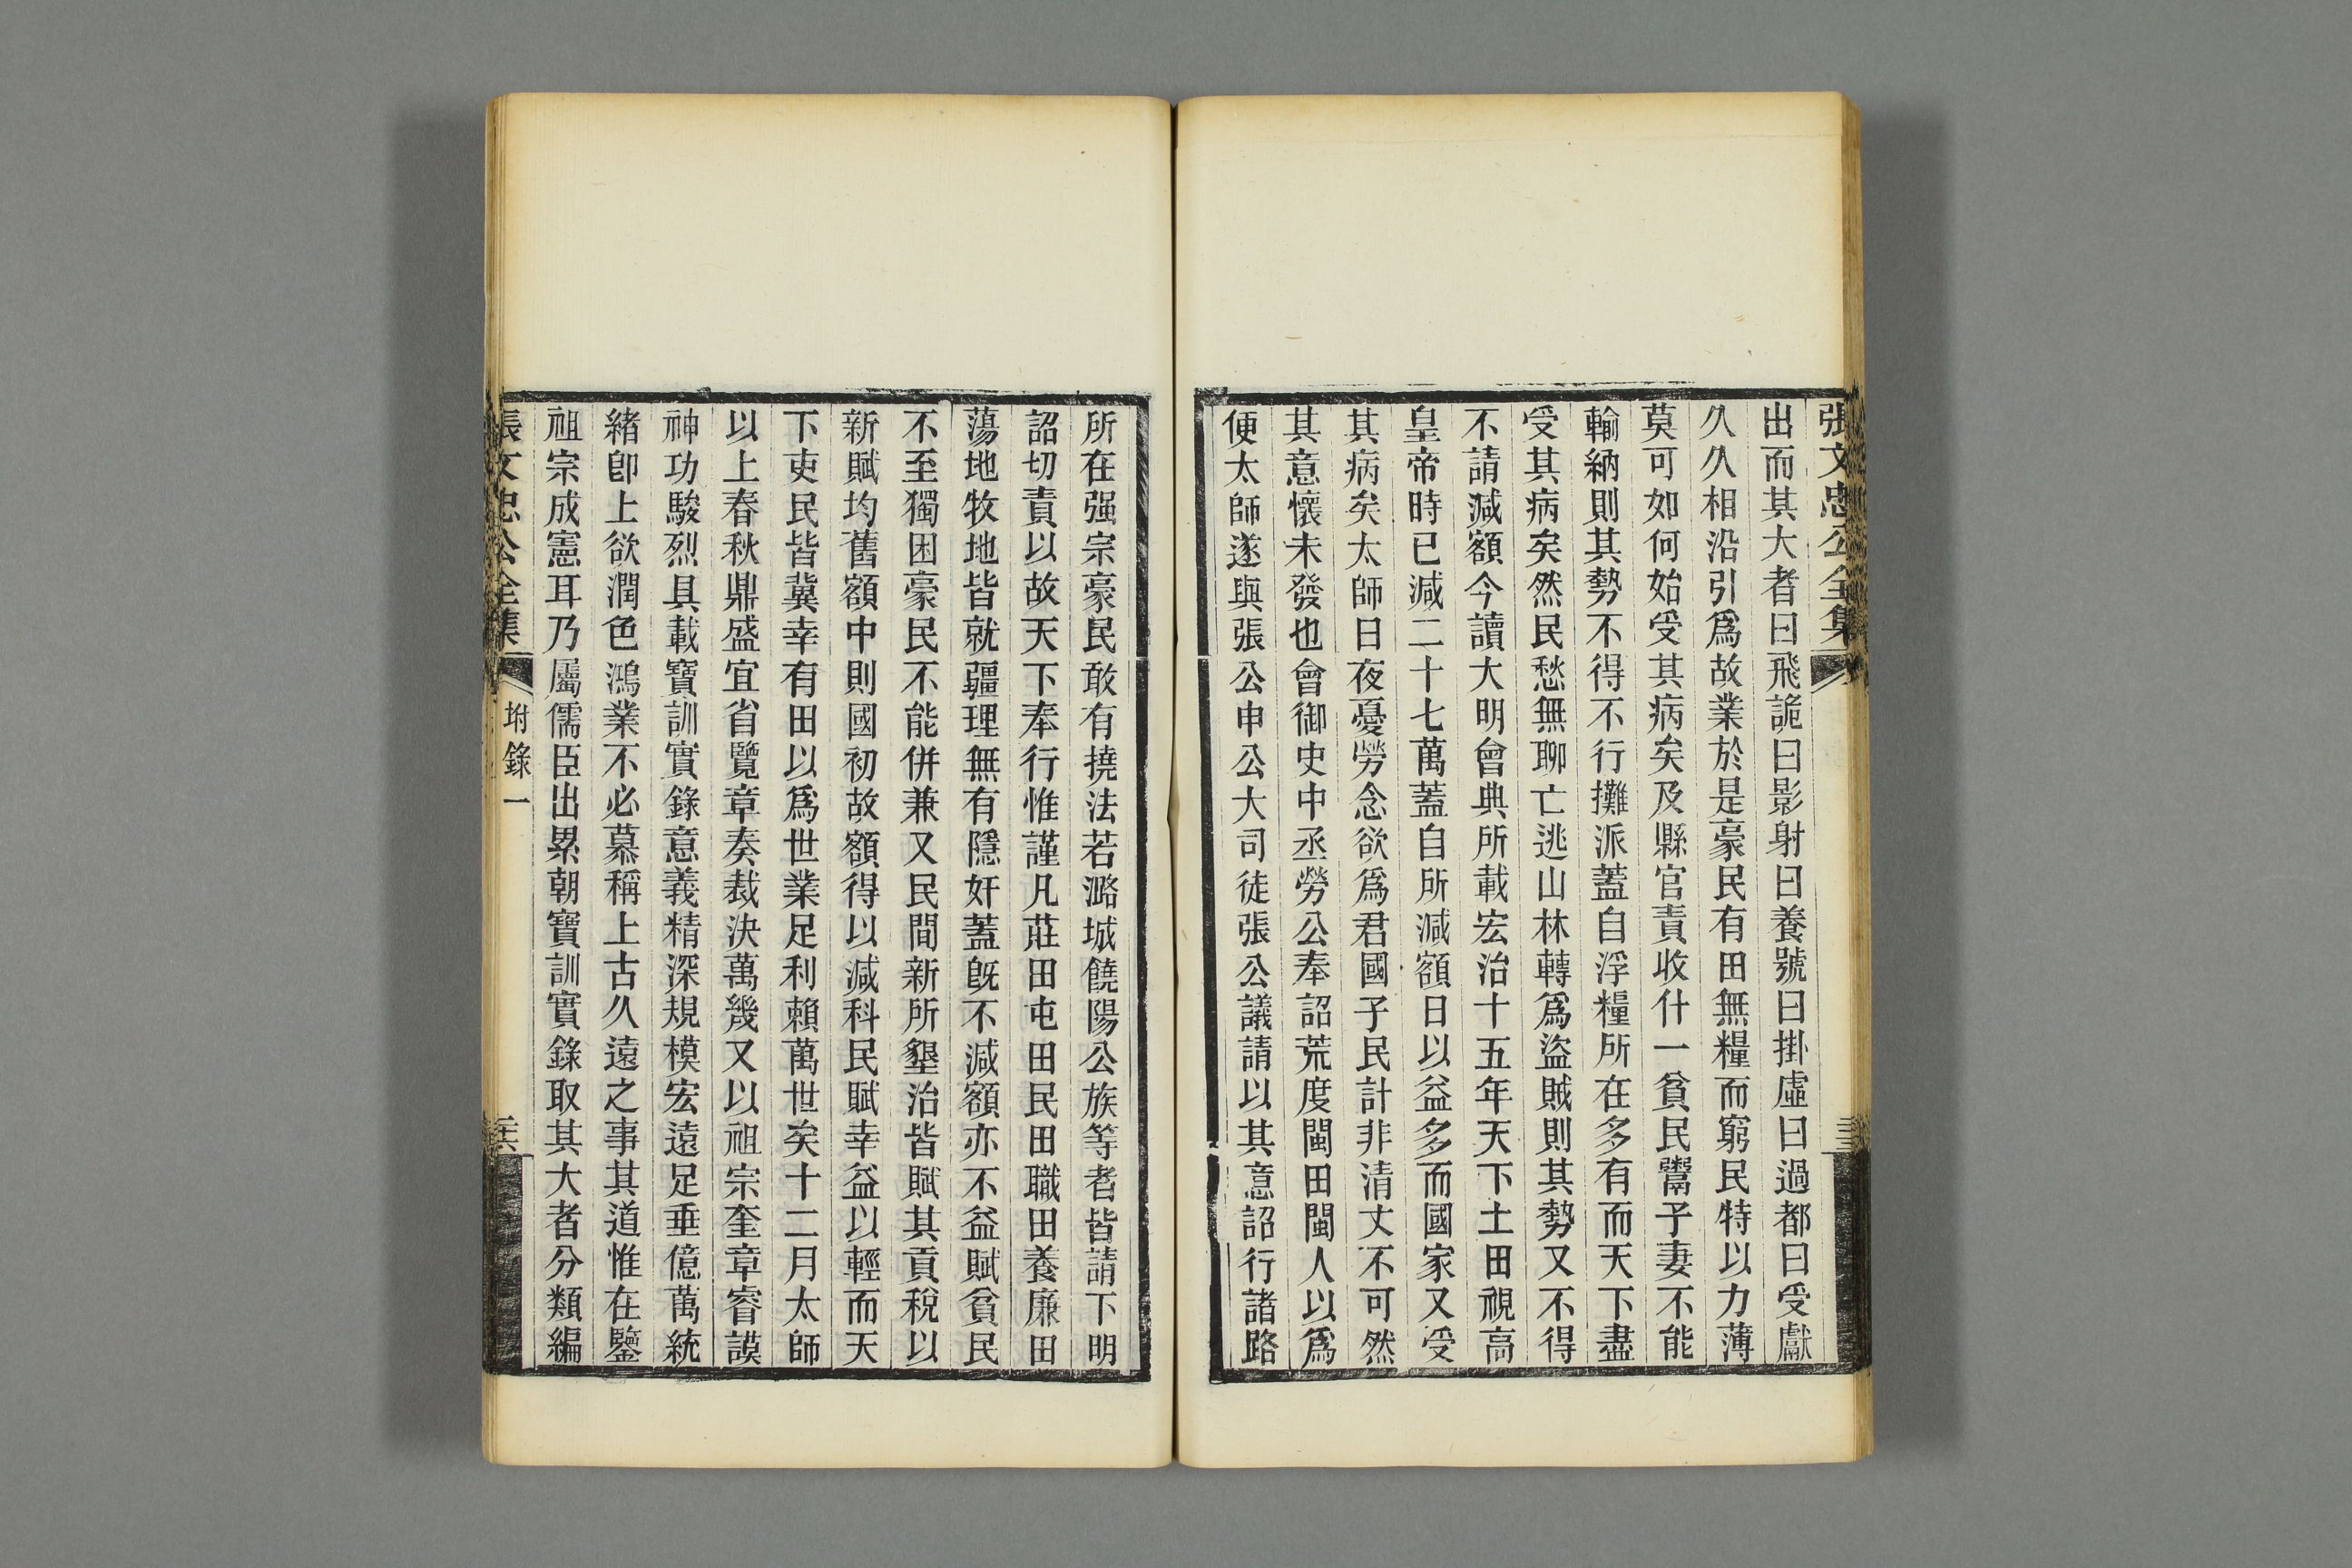 張文忠公全集
出而其大者曰飛詭曰影射曰養號曰掛虛曰過都曰受獻
久久相沿引爲故業於是豪民有田無糧而窮民特以力薄
莫可如何始受其病矣及縣官責收什一貧民鬻子妻不能
輸納則其勢不得不行攤派蓋自浮糧所在多有而天下盡
受其病矣然民愁無聊亡逃山林轉爲盜賊則其勢又不得
不請減額今讀大明會典所載宏治十五年天下土田視高
皇帝時已減二十七萬蓋自所減額日以益多而國家又受
其病矣太師日夜憂勞念欲爲君國子民計非清丈不可然
其意懷未發也會御史中丞勞公奉詔荒度閩田閩人以爲
便太師遂與張公申公大司徒張公議請以其意詔行諸路
所在强宗豪民敢有撓法若潞城饒陽公族等者皆請下明
詔切責以故天下奉行惟謹凡莊田屯田民田職田養廉田
蕩地牧地皆就疆理無有隱奸蓋旣不減額亦不益賦貧民
不至獨困豪民不能併兼又民間新所墾治皆賦其貢稅以
新賦均舊額中則國初故額得以減科民賦幸益以輕而天
下吏民皆冀幸有田以爲世業足利賴萬世矣十二月太師
以上春秋鼎盛宜省覽章奏裁決萬幾又以祖宗奎章睿謨
神功駿烈具載寶訓實錄意義精深規模宏遠足垂億萬統
緒卽上欲潤色鴻業不必慕稱上古久遠之事其道惟在鑒
祖宗成憲耳乃屬儒臣出累朝寶訓實錄取其大者分類編
張文忠公全集 坿錄一